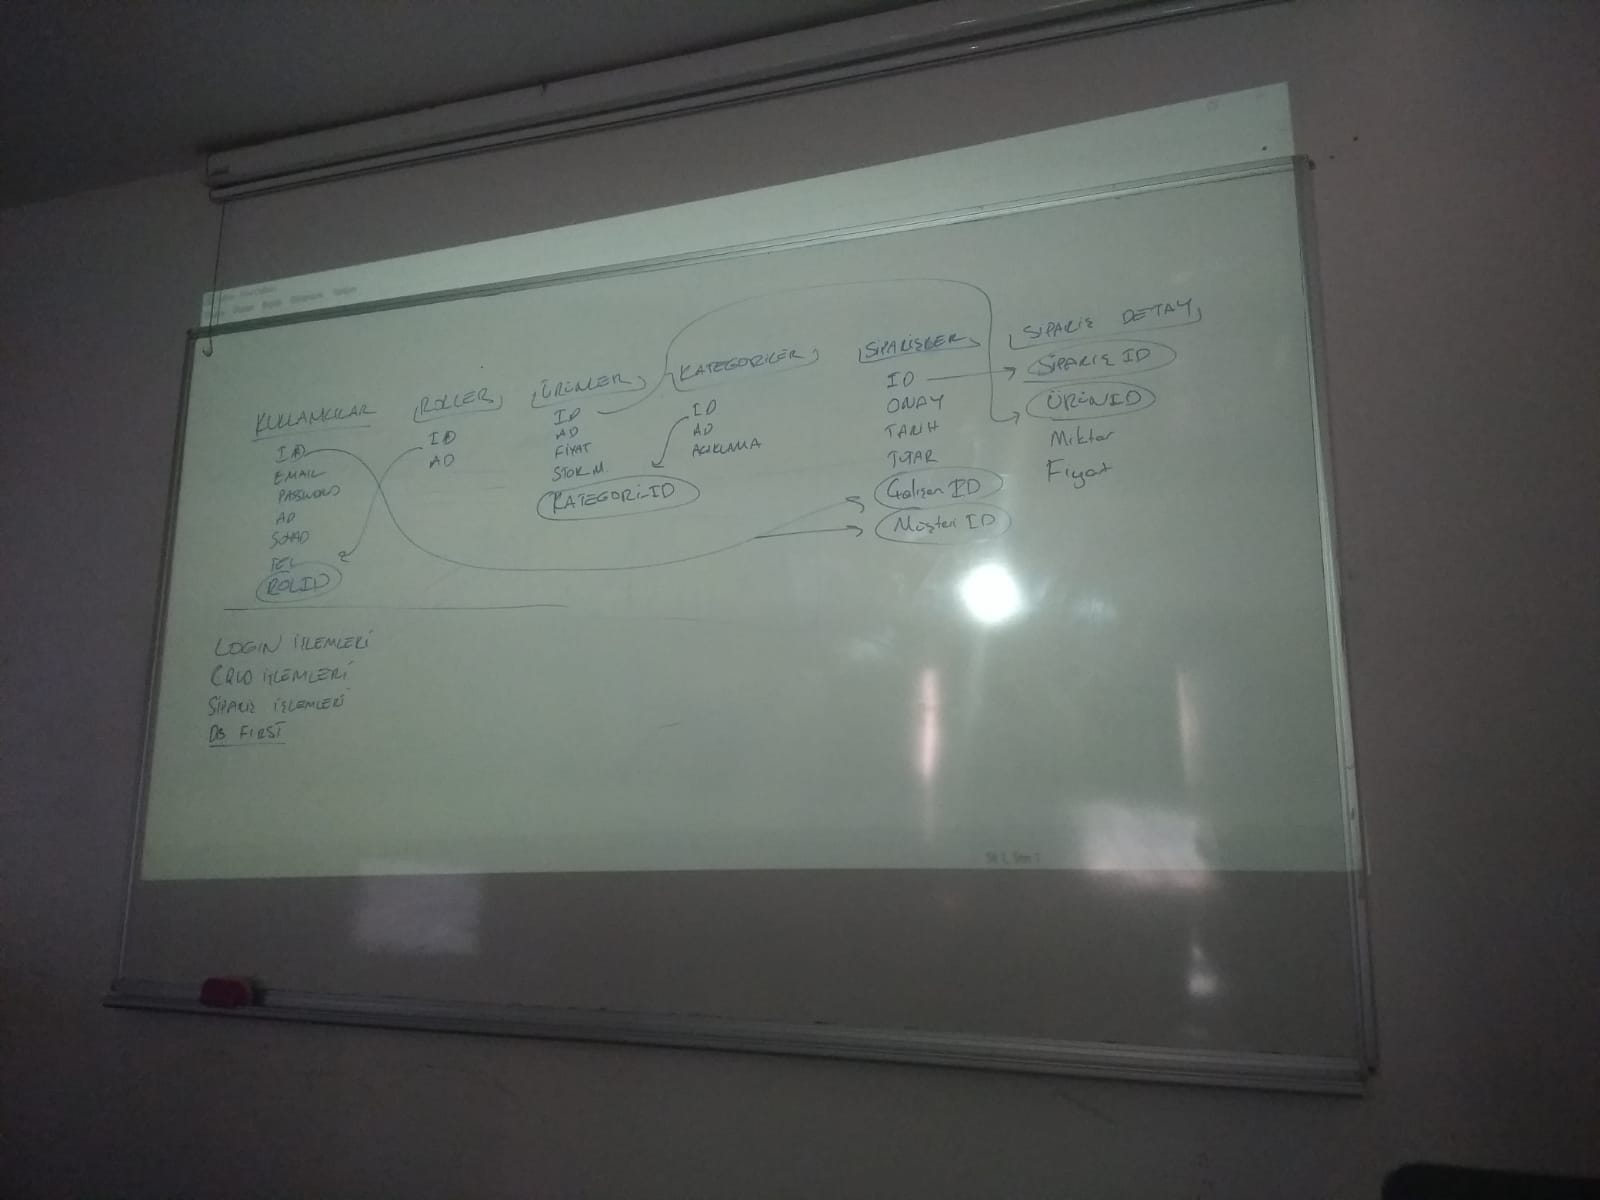 KULLANICILAR
ID
EMAIL
PASSWORD
AD
SOYAD
TEL
ROLID
ROLLER
ID
AD
ÜRÜNLER
ID
AD
FİYAT
STOK M.
KATEGORİ-ID
KATEGORİLER
ID
AD
AÇIKLAMA
SİPARİŞLER
ID
ONAY
TARİH
TUTAR
Çalışan ID
Müşteri ID
SİPARİŞ DETAY
SİPARİŞ ID
ÜRÜNID
Miktar
Fiyat
LOGIN İŞLEMLERİ
CRUD İŞLEMLERİ
SİPARİŞ İŞLEMLERİ
DB FIRST